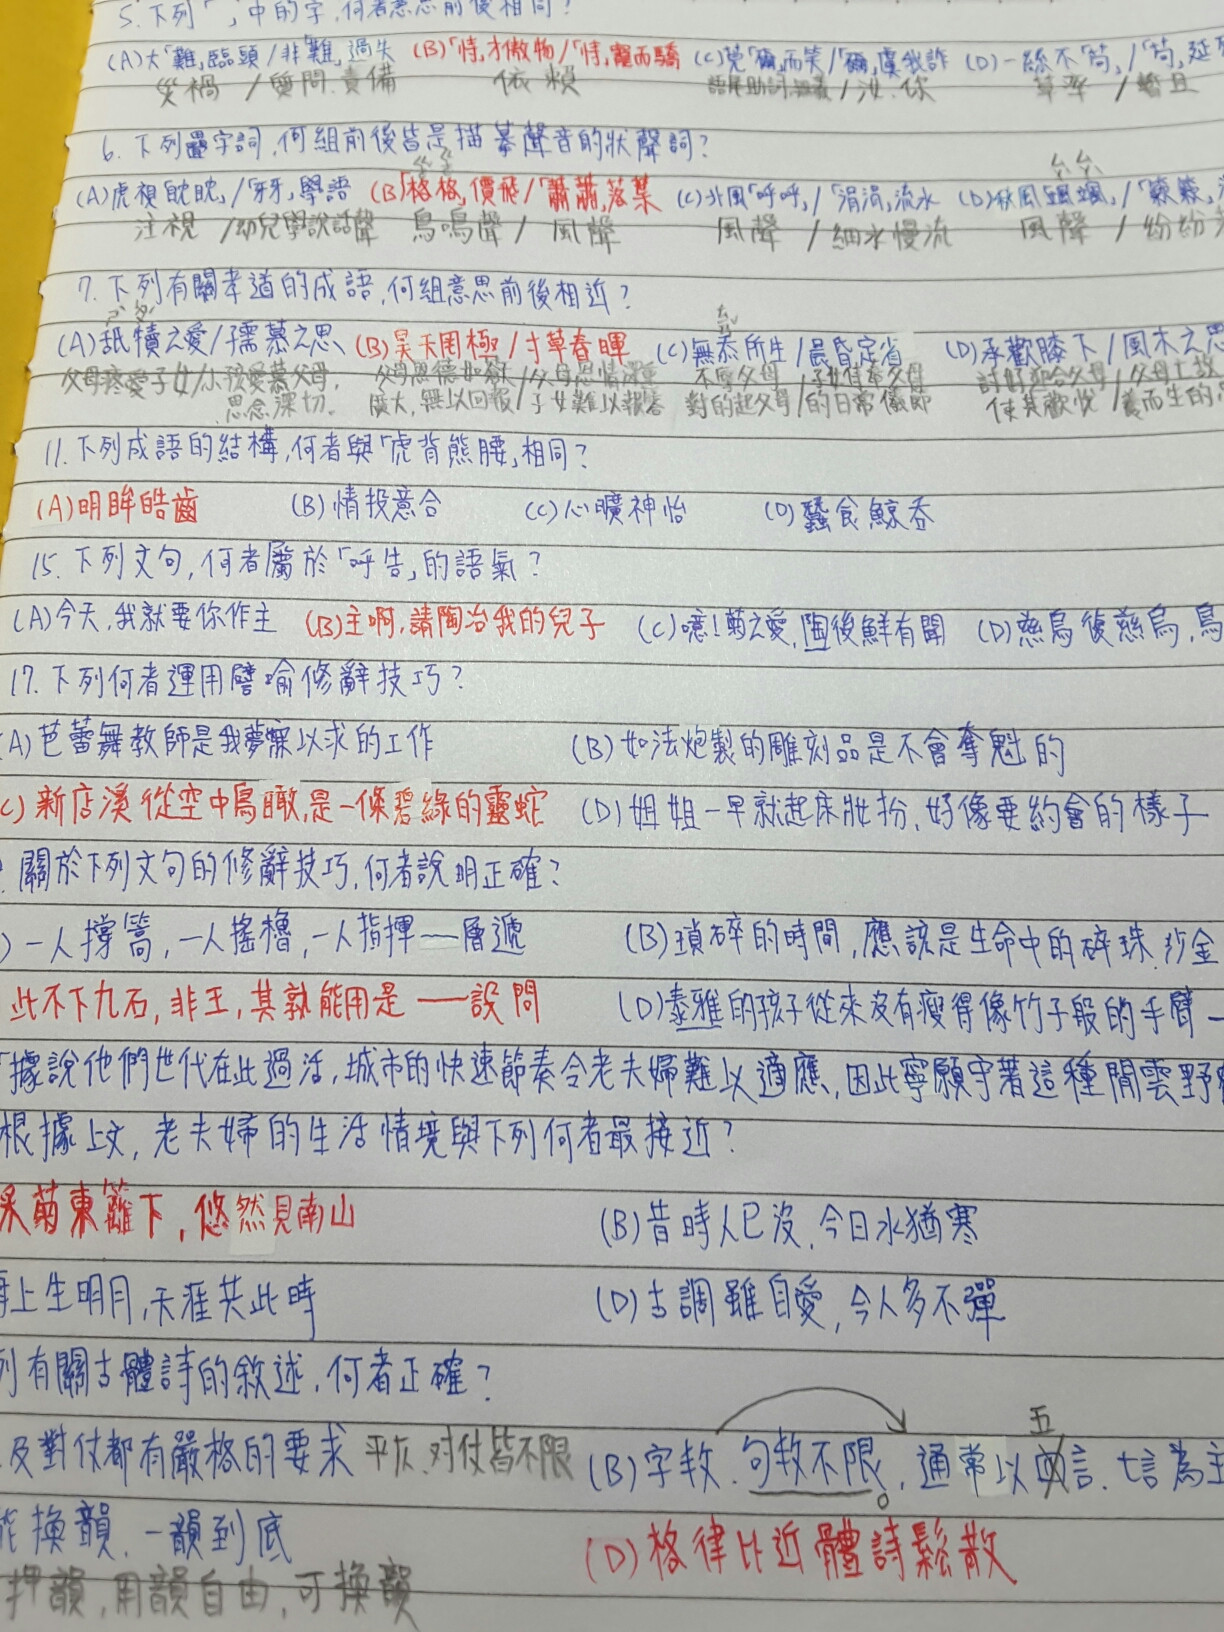 5.下列「」中的字,何者意思前後相同?
(A)大「難」臨頭/非「難」過失 (B)「恃」才傲物/「恃」寵而驕 (C)莞「爾」而笑/「爾」虞我詐 (D)一絲不「苟」/「苟」延
災禍/質問.責備 依賴 語尾助詞,無義/汝.你 草率/暫且
6.下列疊字詞,何組前後皆是描摹聲音的狀聲詞?
ㄍㄜˊ ㄙㄙ
(A)虎視眈眈/「牙牙」學語 (B)「格格」價飛/「蕭蕭」落葉 (C)北風「呼呼」/「涓涓」流水 (D)秋風「颯颯」/「簌簌」
注視/幼兒學說話聲 鳥鳴聲/風聲 風聲/細水慢流 風聲/紛紛
7.下列有關孝道的成語,何組意思前後相近?
(A)舐犢之愛/孺慕之思 (B)昊天罔極/寸草春暉 (C)無忝所生/晨昏定省 (D)承歡膝下/風木之思
父母疼愛子女/小孩愛慕父母. 父母恩德如天/父母恩情深重 不辱父母/子女侍奉父母 討好迎合父母/父母亡故
思念深切. 廣大,無以回報/子女難以報答 對的起父母/的日常儀節 使其歡悅/養而生的
11.下列成語的結構,何者與「虎背熊腰」相同?
(A)明眸皓齒 (B)情投意合 (C)心曠神怡 (D)蠶食鯨吞
15.下列文句,何者屬於「呼告」的語氣?
(A)今天,我就要你作主 (B)主啊,請陶冶我的兒子 (C)噫!菊之愛,陶後鮮有聞 (D)慈烏復慈烏,鳥
17.下列何者運用譬喻修辭技巧?
(A)芭蕾舞教師是我夢寐以求的工作 (B)如法炮製的雕刻品是不會奪魁的
C)新店溪從空中鳥瞰,是一條碧綠的靈蛇 (D)姐姐一早就起床妝扮,好像要約會的樣子
.關於下列文句的修辭技巧,何者說明正確?
)一人撐篙,一人搖櫓,一人指揮——層遞 (B)瑣碎的時間,應該是生命中的碎珠.沙金
此不下九石,非王,其孰能用是——設問 (D)泰雅的孩子從來沒有瘦得像竹子般的手臂—
「據說他們世代在此過活,城市的快速節奏令老夫婦難以適應,因此寧願守著這種閒雲野
根據上文,老夫婦的生活情境與下列何者最接近?
采菊東籬下,悠然見南山 (B)昔時人已沒,今日水猶寒
上生明月,天涯共此時 (D)古調雖自愛,今人多不彈
列有關古體詩的敘述,何者正確?
五
.及對仗都有嚴格的要求 平仄.对仗皆不限 (B)字数.句数不限,通常以四言.七言為主
能換韻.一韻到底 (D)格律比近體詩鬆散
押韻,用韻自由,可換韻